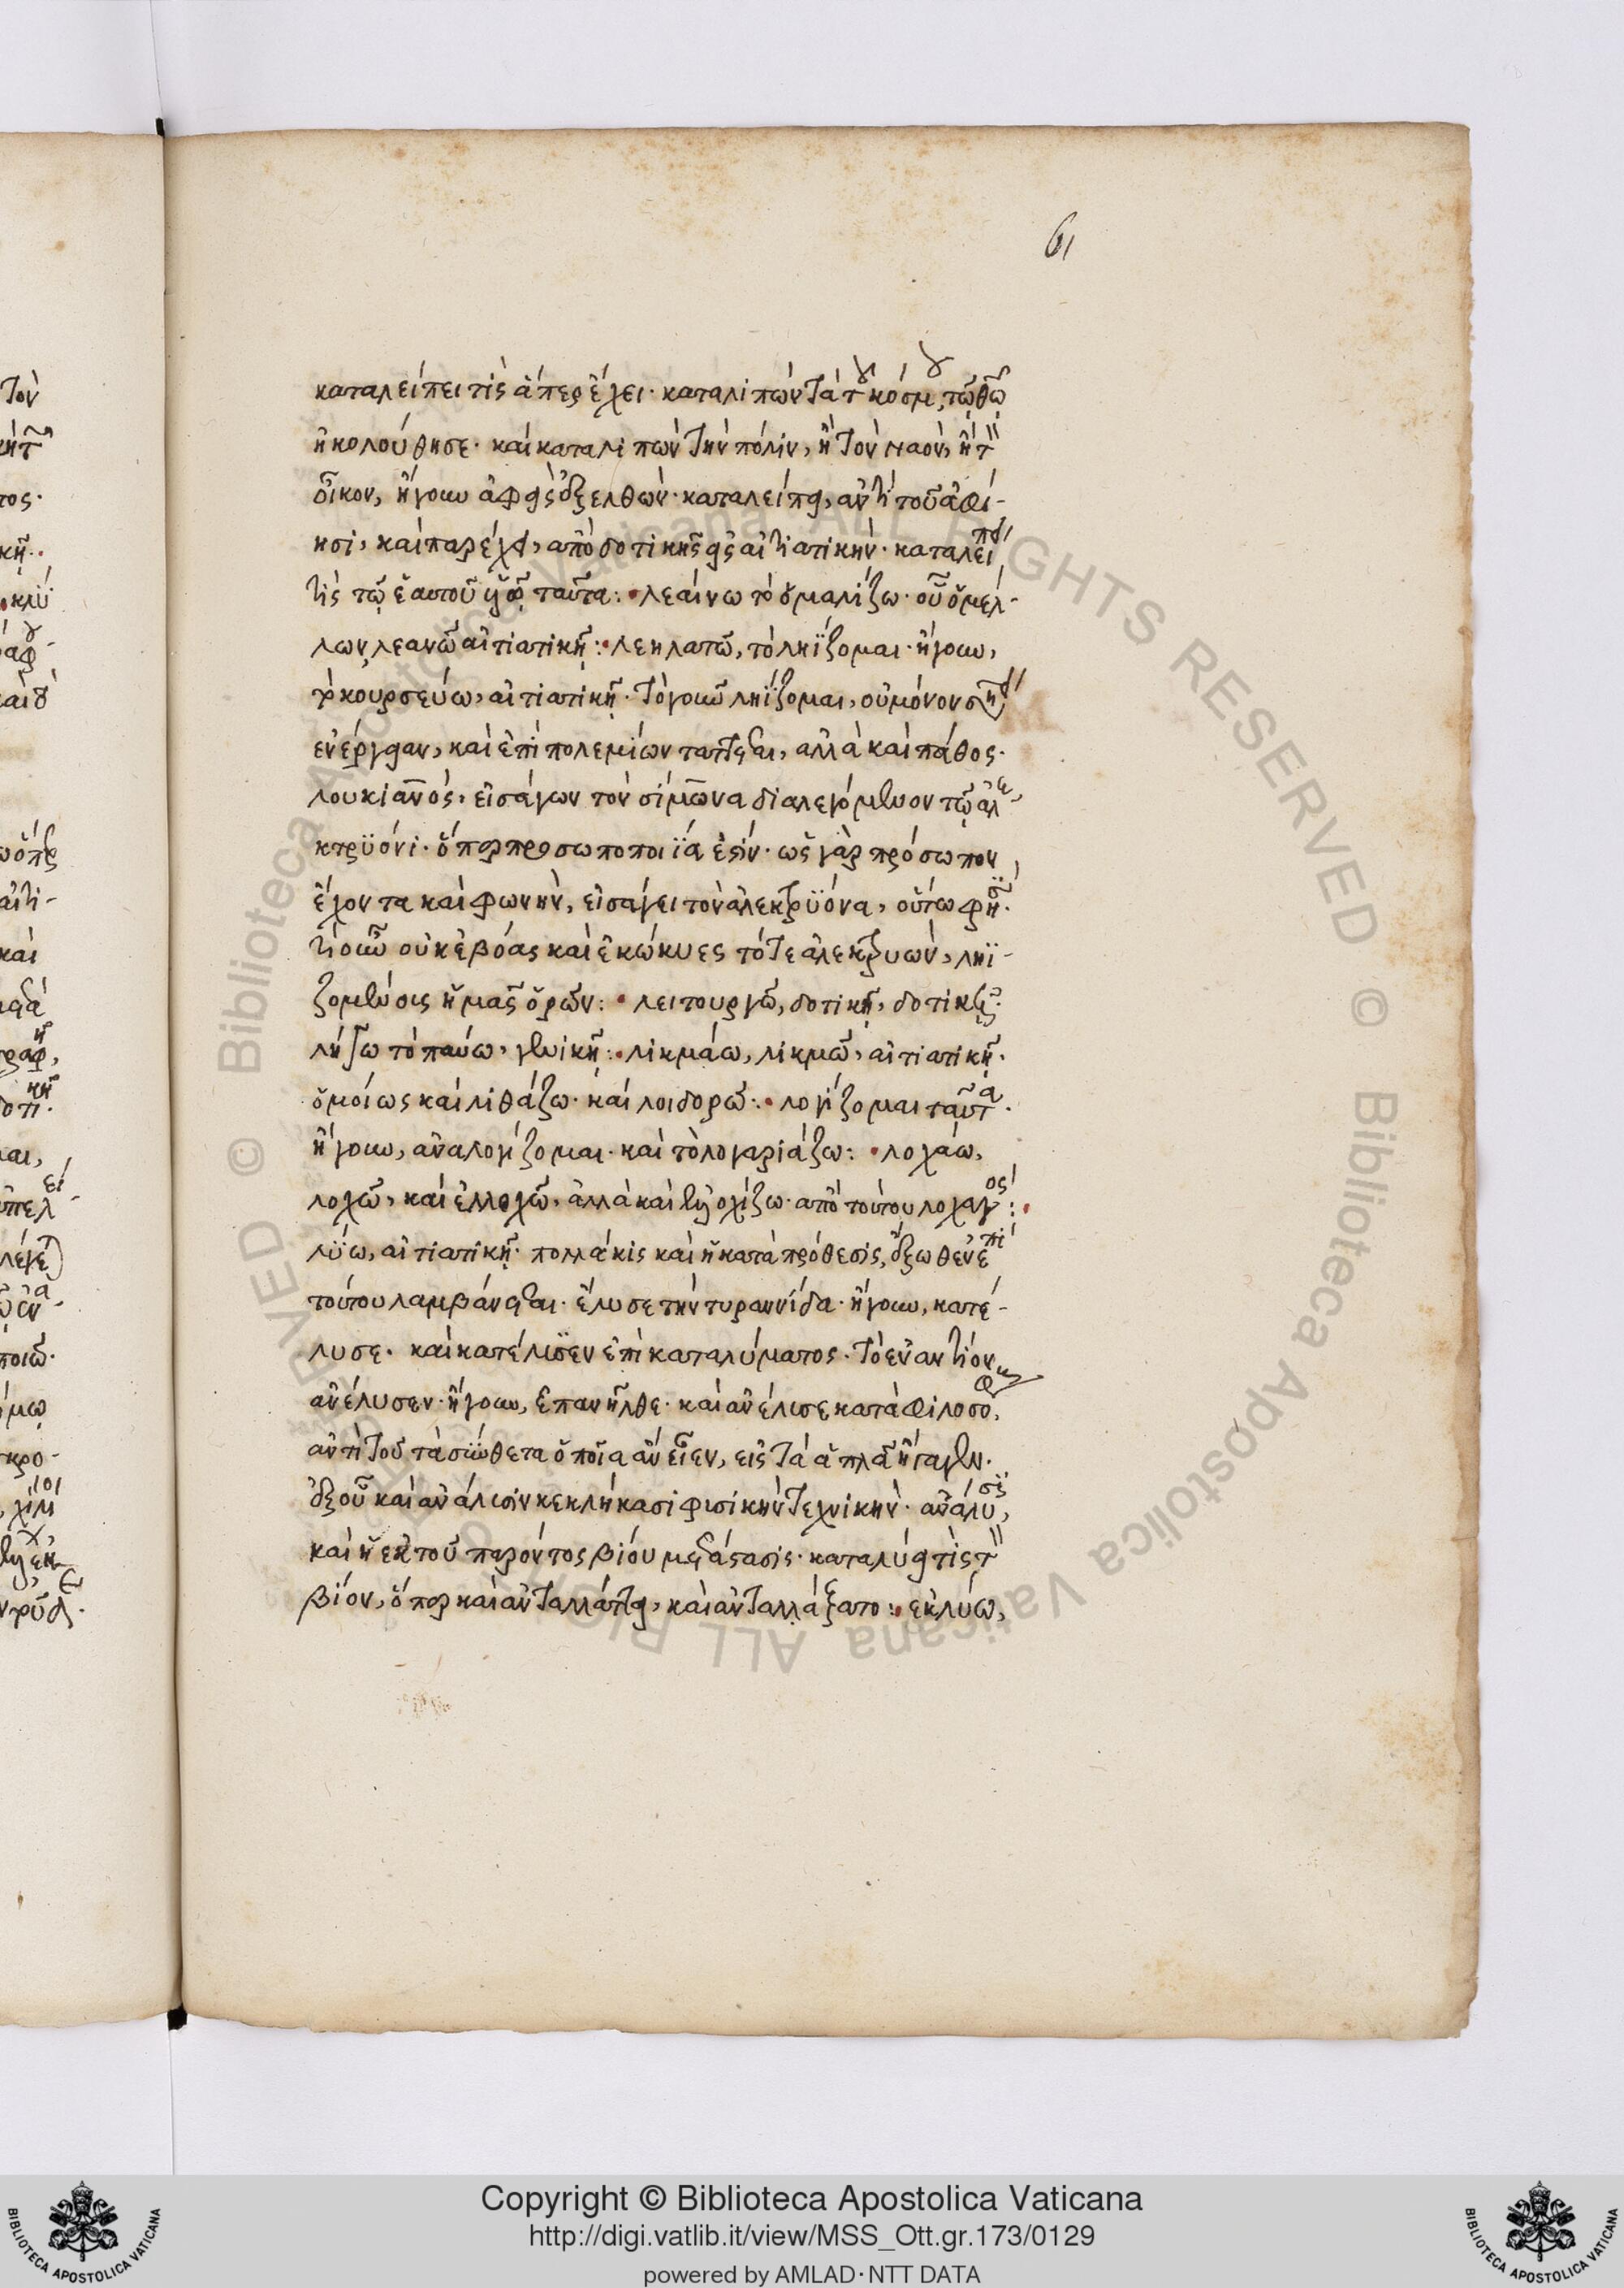 61
καταλείπει τίς ἅπερ ἔχει· καταλιπὼν τὰ τοῦ κόσμου, τῷ θῷ
ἠκολούθησε· καὶ καταλιπὼν τὴν πόλιν, ἢ τὸν ναὸν, ἢ τὸν
οἶκον, ἤγουν ἀφεὶς ἐξελθών· καταλείπει, ἀντὶ τοῦ ἀφί-
ησι, καὶ παρέχει, ἀπὸ δοτικῆς εἰς αἰτιατικήν· καταλείπει
τὶς τῷ ἑαυτοῦ υἱῷ ταῦτα: λεαίνω τὸ ὁμαλίζω· οὗ ὁ μέλ-
λων, λεανῶ αἰτιατικῇ: λεηλατῶ, τὸ ληΐζομαι· ἤγουν,
κουρσεύω, αἰτιατικῇ· τὸ γοῦν ληΐζομαι, οὐ μόνον
ἐνέργειαν, καὶ ἐπὶ πολεμίων τάττεται, ἀλλὰ καὶ πάθος·
λουκιανὸς, εἰσάγων τὸν σίμωνα διαλεγόμενον τῷ ἀλε-
κτρυόνι· ὅπερ προσωποποιΐα ἐστίν· ὡς γὰρ πρόσωπον
ἔχοντα καὶ φωνὴν, εἰσάγει τὸν ἀλεκτρυόνα, οὕτω φησί·
τί οὖν οὐκ ἐβόας καὶ ἐκώκυες τότε ἀλεκτρυών, ληϊ-
ζομένους ἡμᾶς ὁρῶν: λειτουργῶ, δοτικῇ, δοτικῇ
λήγω τὸ παύω, γενικῇ: λικμάω, λικμῶ, αἰτιατικῇ·
ὁμοίως καὶ λιθάζω· καὶ λοιδορῶ: λογίζομαι ταῦτα·
ἤγουν, ἀναλογίζομαι· καὶ τὸ λογαριάζω: λοχάω,
λοχῶ, καὶ ἐλλοχῶ, ἀλλὰ καὶ ἐνλοχίζω· ἀπὸ τούτου λοχαγός:
λύω, αἰτιατικῇ· πολλάκις καὶ ἡ κατὰ πρόθεσις, ἔξωθεν ἐπὶ
τούτου λαμβάνεται· ἔλυσε τὴν τυραννίδα· ἤγουν, κατέ-
λυσε· καὶ κατέλυσεν ἐπὶ καταλύματος· τὸ ἐναντίον
ἀνέλυσεν· ἤγουν, ἐπανῆλθε· καὶ ἀνέλυσε κατὰ φιλοσόφους
ἀντὶ τοῦ τὰ σύνθετα ὁποῖα ἂν εἶεν, εἰς τὰ ἁπλᾶ ἤγαγεν·
ἐξ οὗ καὶ ἀνάλυσιν κεκλήκασι φυσικὴν τεχνικήν· ἀνάλυσις,
καὶ ἡ ἐκ τοῦ παρόντος βίου μετάστασις· καταλύει τὶς τὸν
βίον, ὅπερ καὶ ἀνταλλάττει, καὶ ἀνταλλάξατο: ἐκλύω,
Copyright © Biblioteca Apostolica Vaticana
http://digi.vatlib.it/view/MSS_Ott.gr.173/0129
powered by AMLAD·NTT DATA